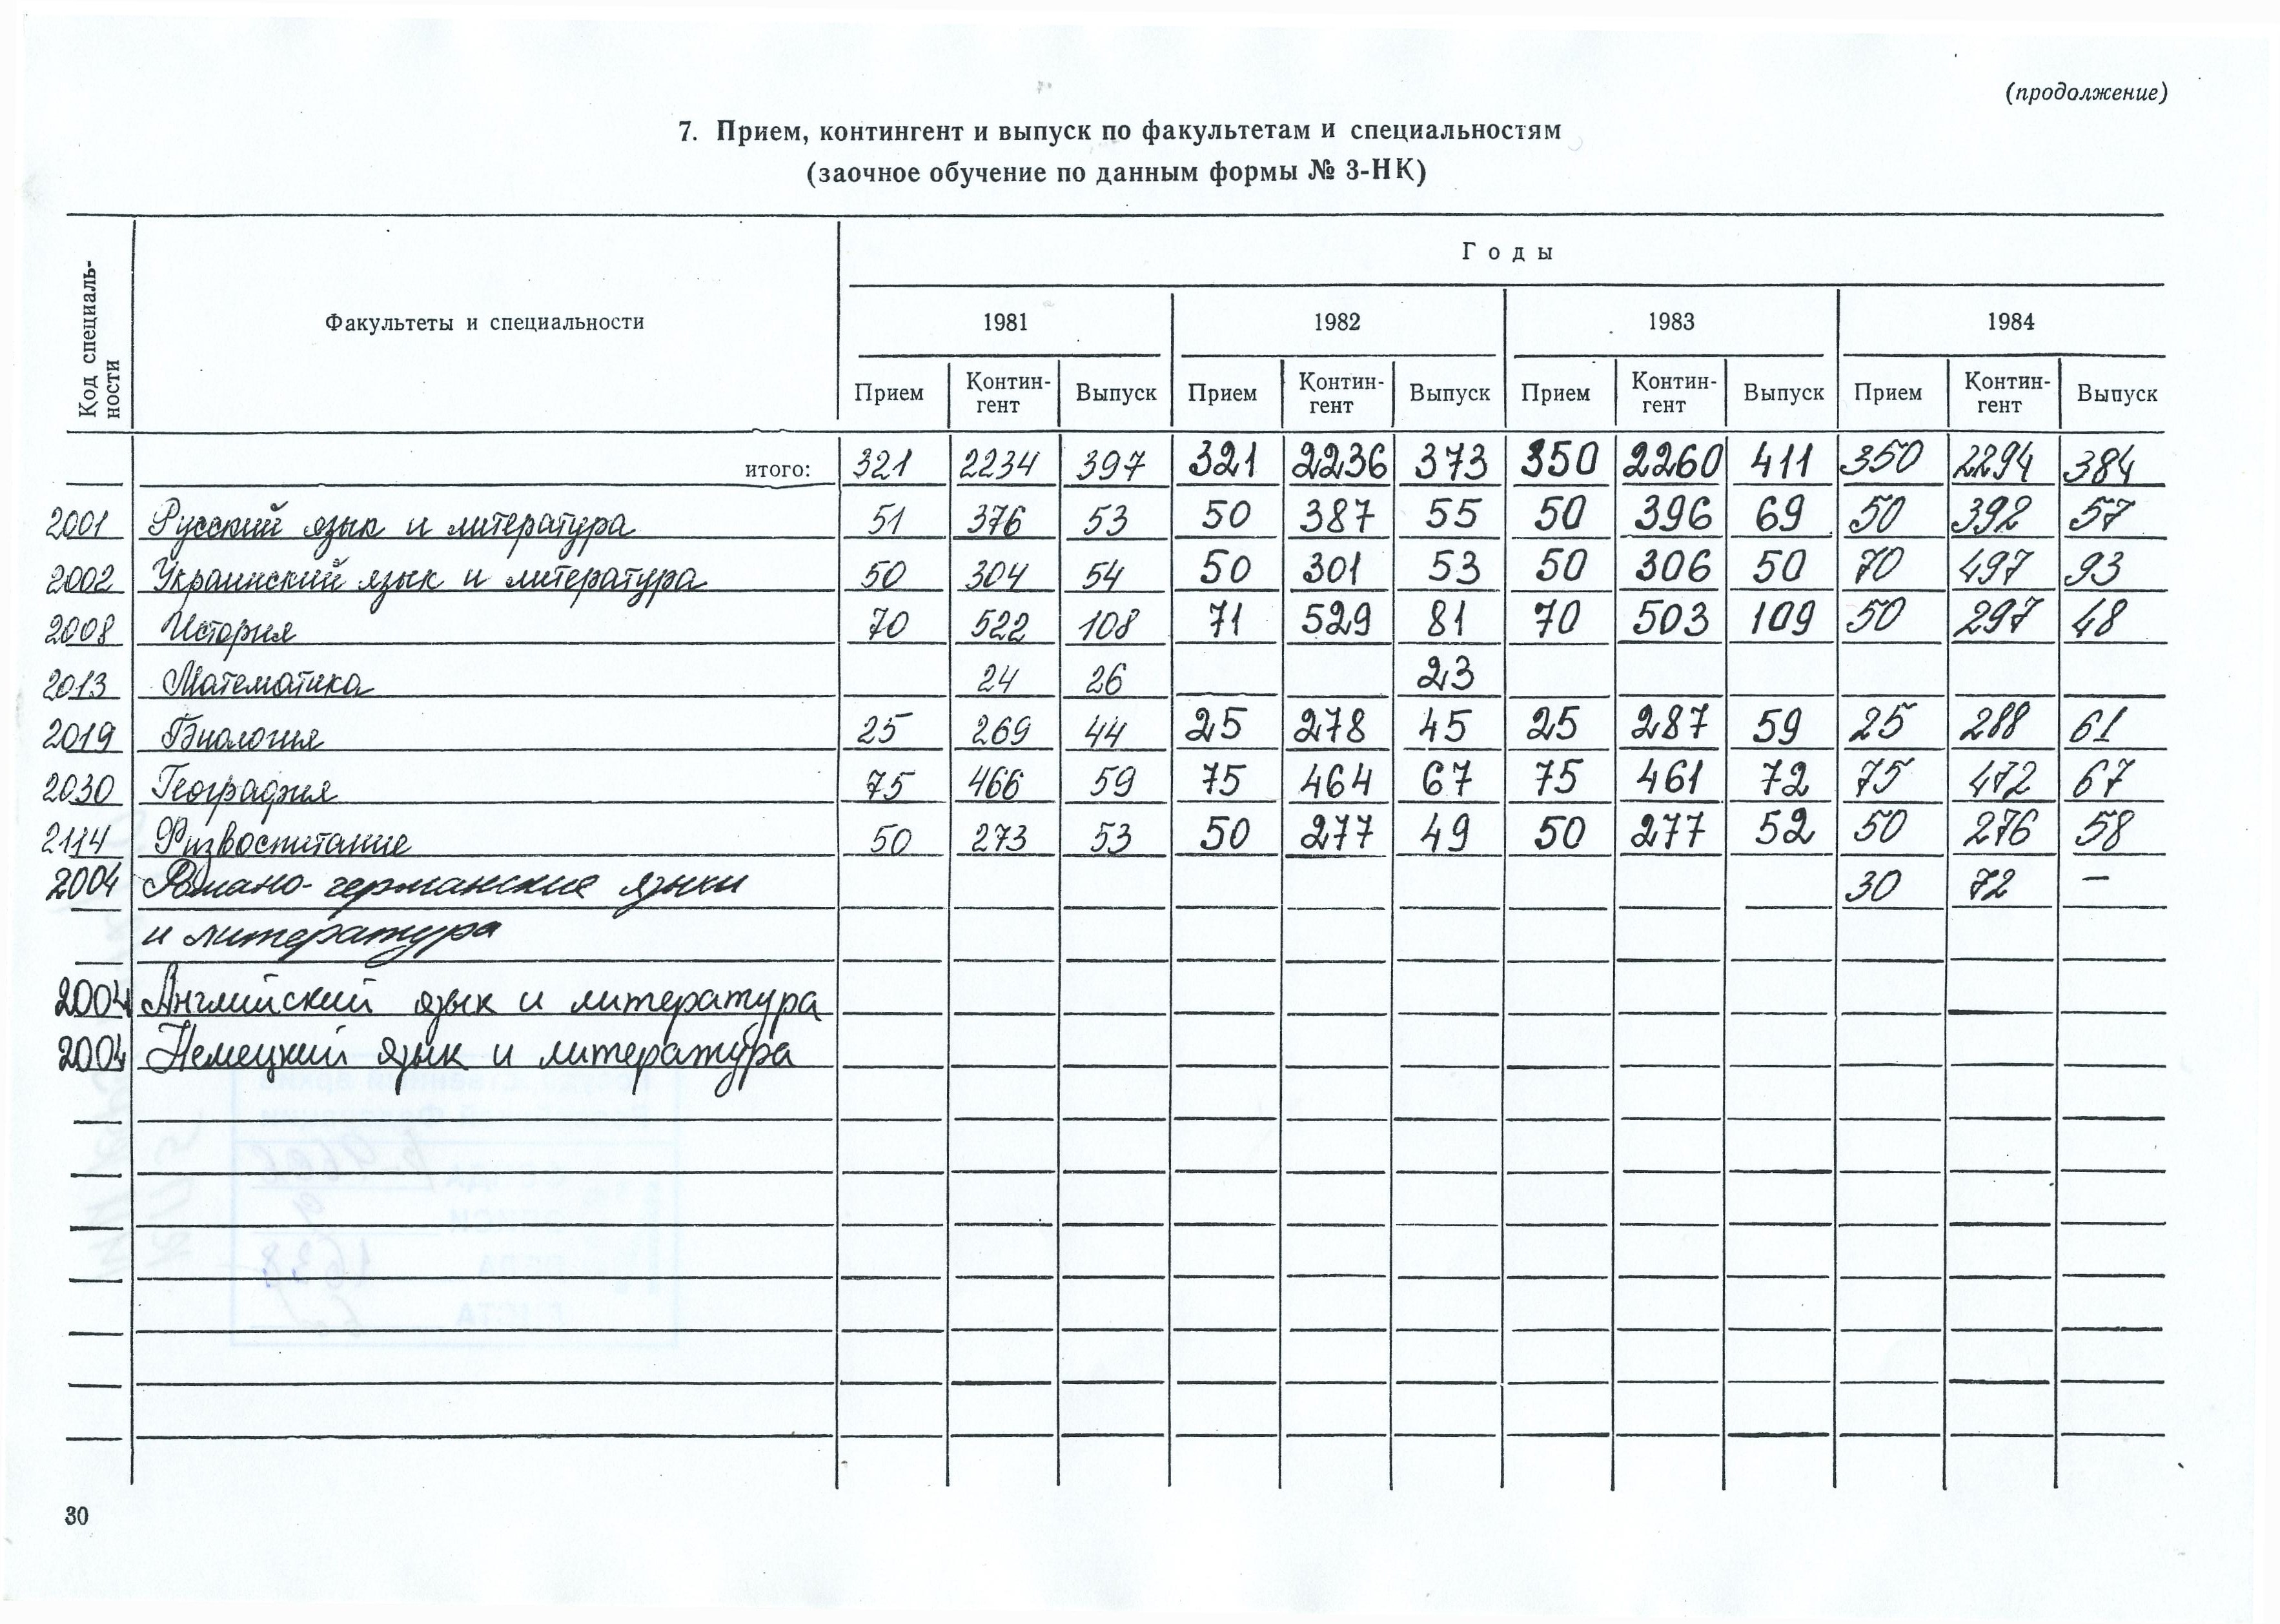 (продолжение)
7. Прием, контингент и выпуск по факультетам и специальностям
(заочное обучение по данным формы № 3-НК)
Код специаль-
ности
Факультеты и специальности
Годы
1981 1982 1983 1984
Прием Контин-гент Выпуск Прием Контин-гент Выпуск Прием Контин-гент Выпуск Прием Контин-гент Выпуск
итого: 321 2234 397 321 2236 373 350 2260 411 350 2294 384
2001 Русский язык и литература 51 376 53 50 387 55 50 396 69 50 392 57
2002 Украинский язык и литература 50 304 54 50 301 53 50 306 50 70 497 93
2008 История 70 522 108 71 529 81 70 503 109 50 297 48
2013 Математика 24 26 23
2019 Биология 25 269 44 25 278 45 25 287 59 25 288 61
2030 География 75 466 59 75 464 67 75 461 72 75 472 67
2114 Физвоспитание 50 273 53 50 277 49 50 277 52 50 276 58
2004 Романо-германские языки 30 72 —
и литература
2004 Английский язык и литература
2004 Немецкий язык и литература
30